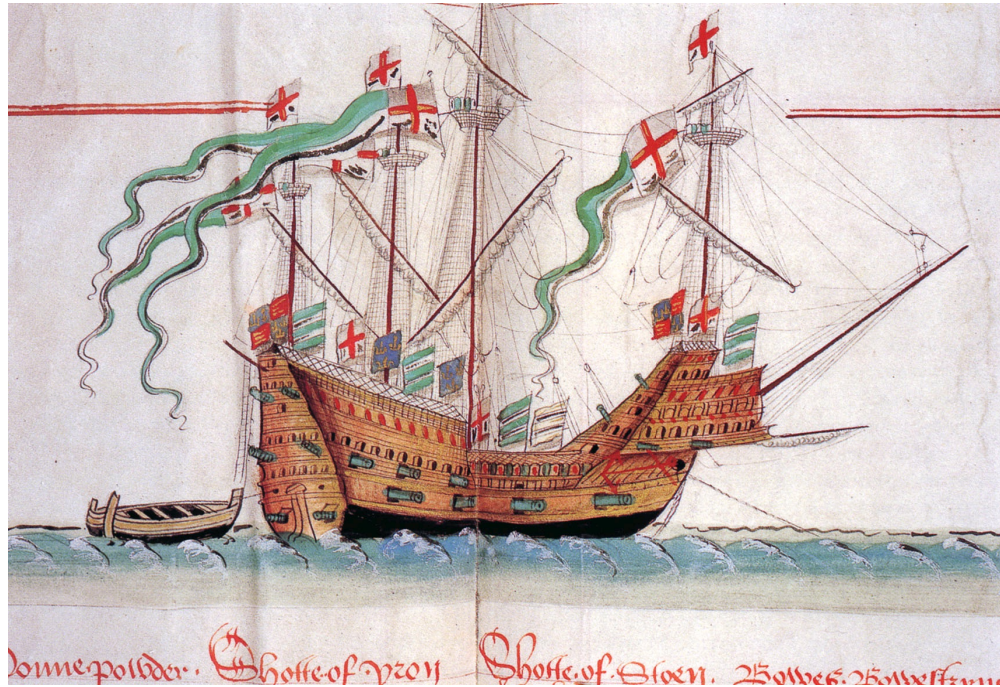 Gonnepowder. Shotte of yron Shotte of Stoen. Bowes. Bowestryng